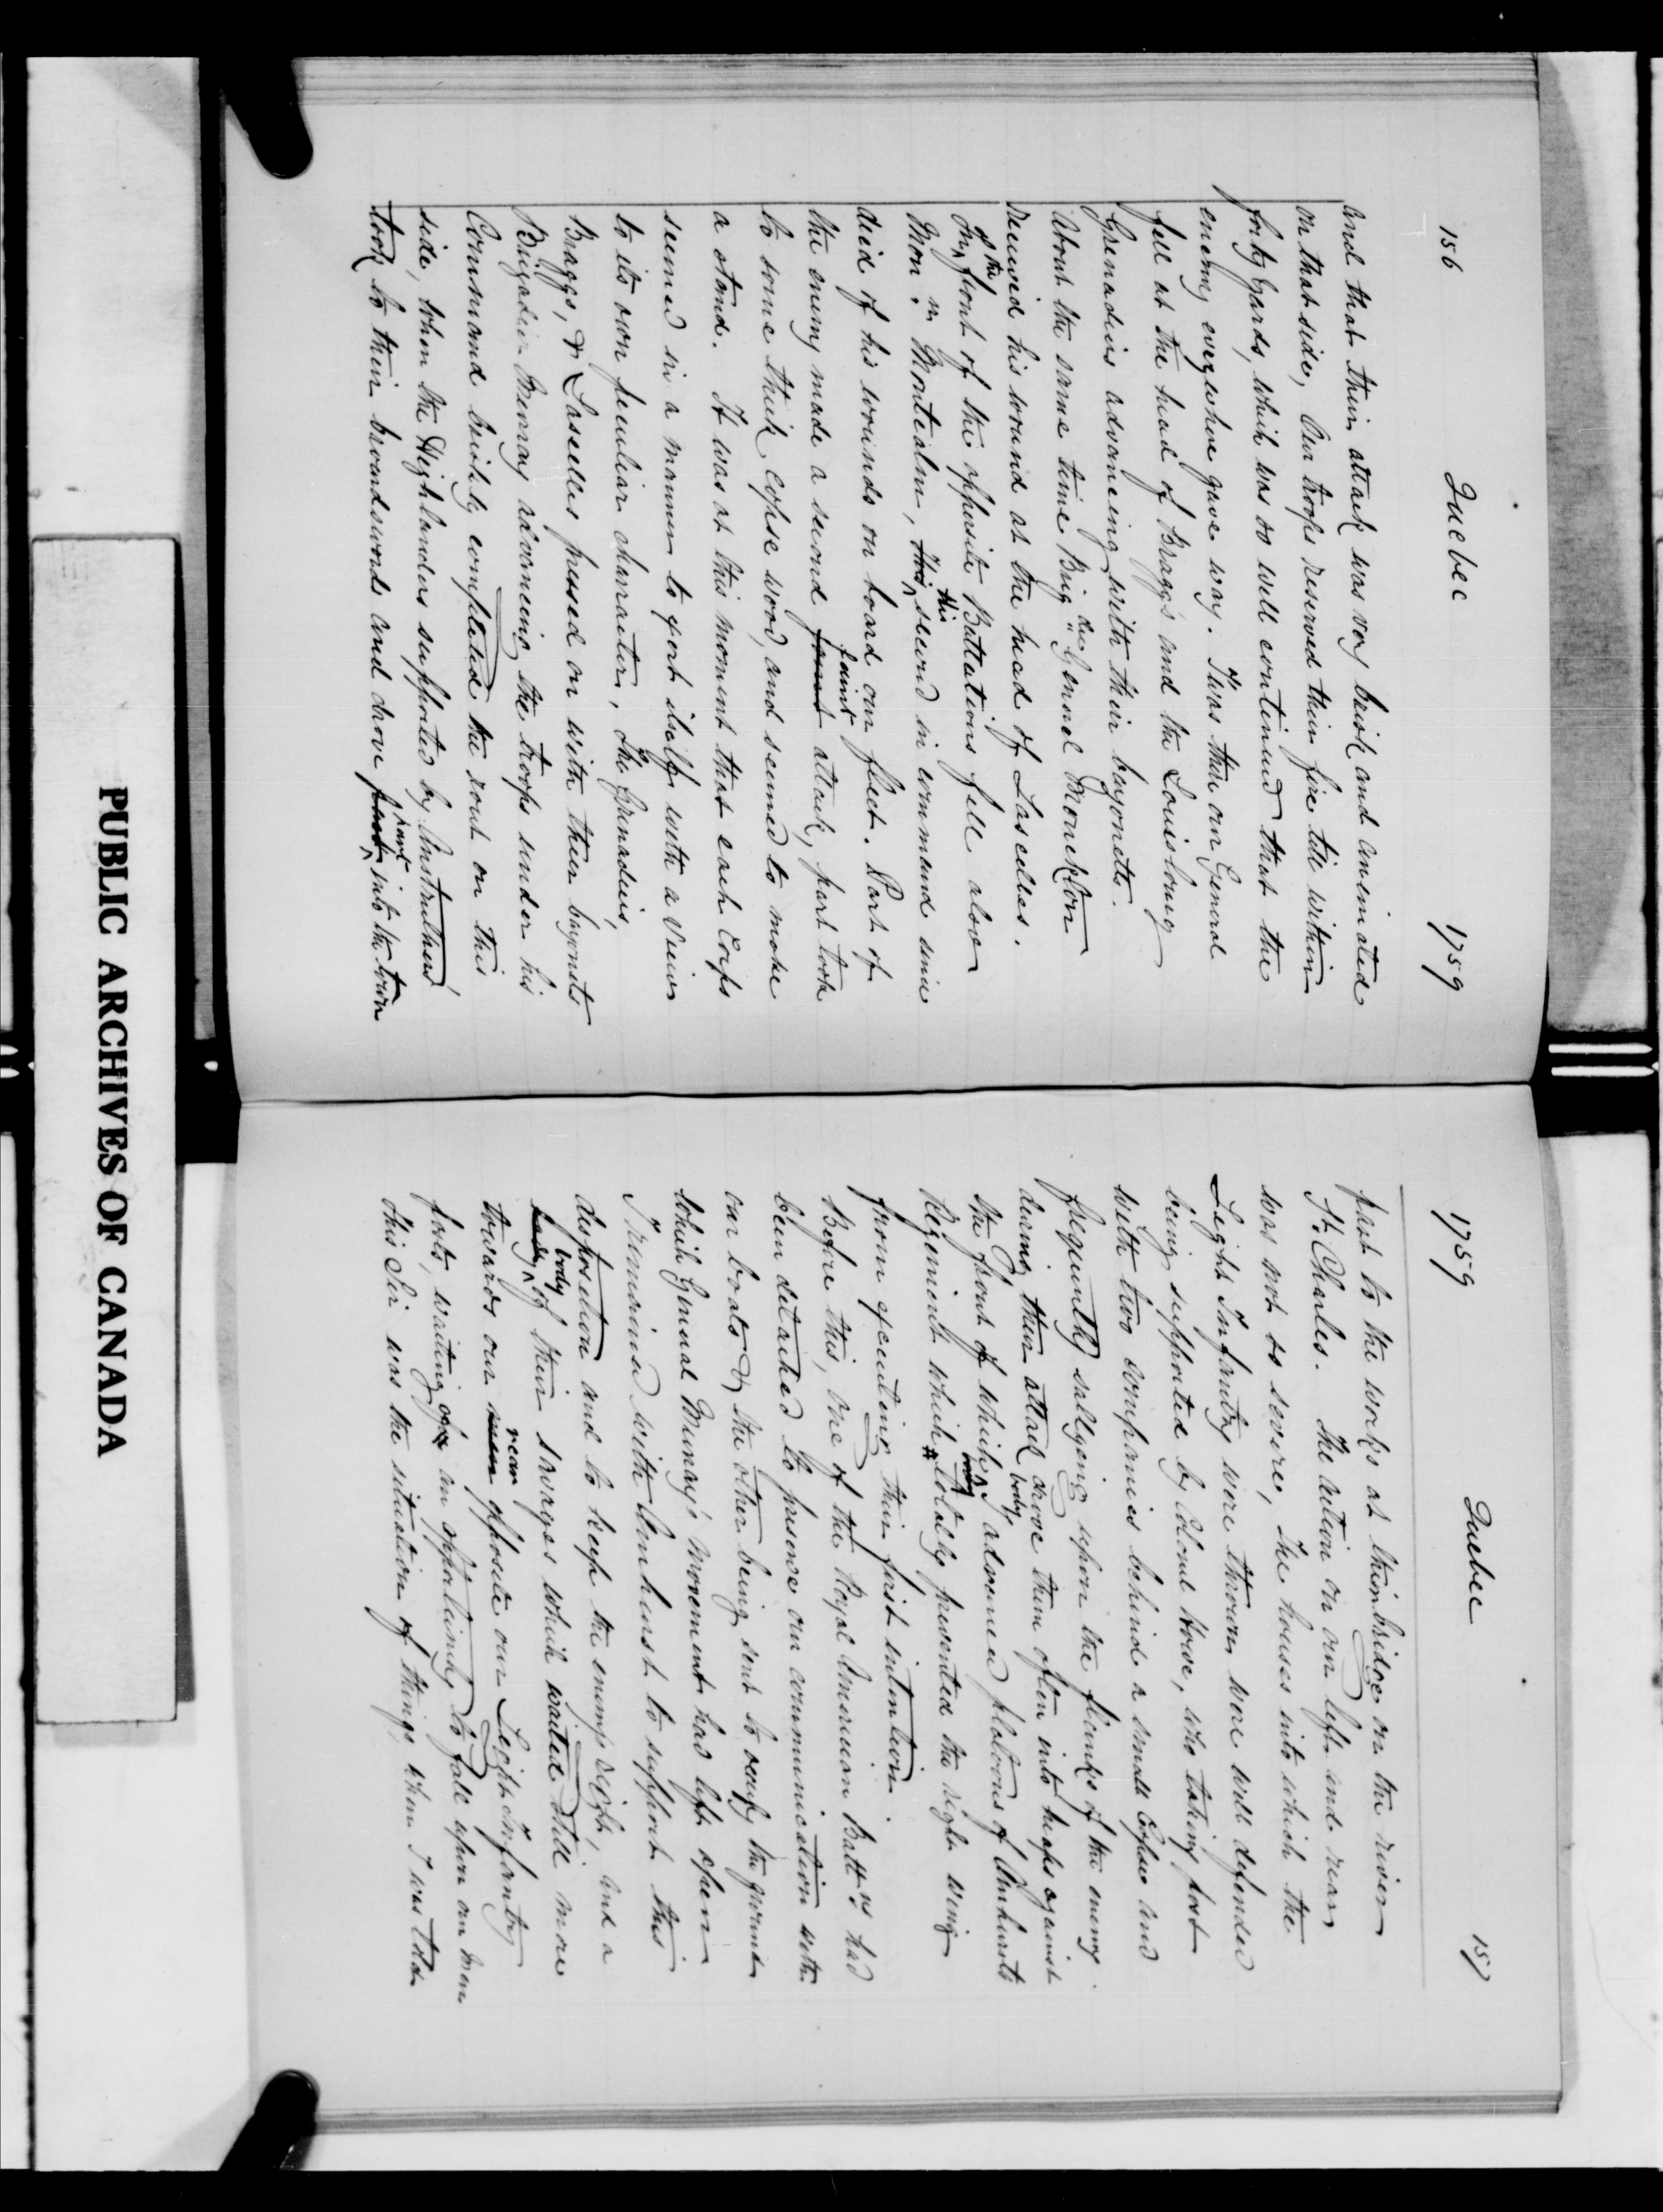 156 Quebec 1759
and that their attack was very brisk and animated
on that side, Our troops reserved their fire till within
forty yards, which was so well continued that the
enemy everywhere gave way. Twas there our General
fell at the head of Bragg's and the Louisbourg
Grenadiers advancing with their bayonets.
About the same time Brig:" Gennel Monckton
received his wound at the head of Lascelles.
In of the front of the opposite Battations fell also
Mon:r Montcalm, this his second in command since
died of his wounds on board our fleet. Part of
the enemy made a second faint attack, part took
to some thick copse wood, and seemed to make
a stand. It was at this moment that each Corps
seemed in a manner to exert itself with a view
to its own peculiar character, The Grenadiers,
Braggs, & Lascelles pressed on with their bayonets
Brigadier Murray advancing the troops under his
Command briskly completed the rout on this
side, when the Highlanders supported by Anstruthers
took to their broadswords and drove part into the town
1759 Quebec 157
part to the works at their bridge on the river
St. Charles. The action on our left and rear
was not so severe, The houses into which the
Light Infantry were thrown were well defended
being supported by Colonel Howe, who taking post
with two companies behind a small Copse and
frequently sallying upon the flanks of the enemy
during their attack drove them often into heaps against
the front of which body I advanced platoons of Amhersts
Regiment which totally prevented the right wing
from executing their first intention.
Before this, One of the Royal American Batt.ns had
been detached to preserve our communication with
our boats & the other being sent to occupy the ground
which General Murray's movement had left open
I remained with Amherst to support this
disposition and to keep the enemys right, and a
body of their savages which waited still more
towards our rear opposite our Light Infantry
posts, waiting for an oppotunity to fall upon our men
this Sir was the situation of things when I was told
PUBLIC ARCHIVES OF CANADA